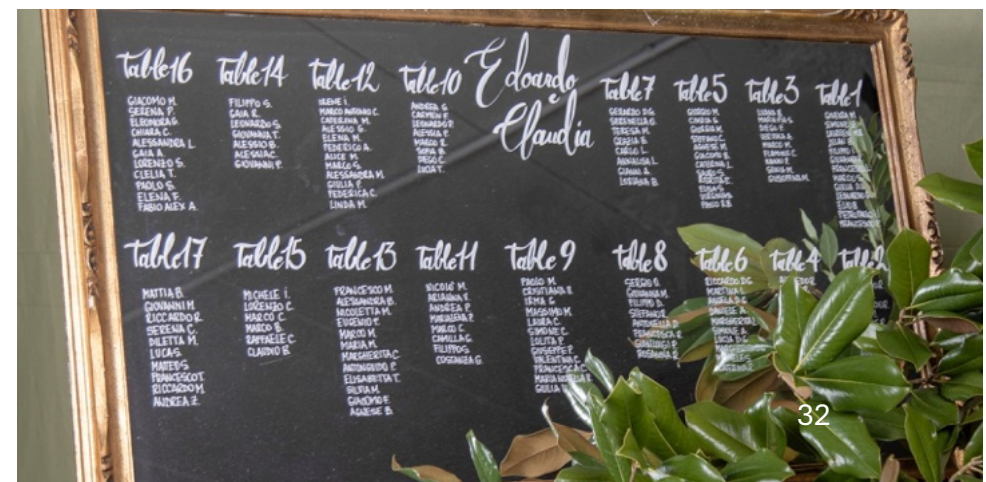 Edoardo
e
Claudia
Table16
GIACOMO M.
SERENA P.
ELEONORA G.
CHIARA C.
ALESSANDRA L.
GAIA A.
LORENZO S.
CLELIA T.
PAOLO S.
ELENA F.
FABIO ALEX A.
Table14
FILIPPO S.
GAIA R.
LEONARDO S.
GIOVANNA T.
ALESSIO B.
ALESSIA C.
GIOVANNI P.
Table12
IRENE I.
MARCO ANTONIO C.
CATERINA M.
ALESSIO G.
ELENA M.
FEDERICO A.
ALICE M.
MARCO S.
ALESSANDRA M.
GIULIA P.
FEDERICA C.
LINDA M.
Table10
ANDREA G.
CARMEN F.
LEONARDO P.
ALESSIA P.
MARCO R.
SOFIA B.
DIEGO C.
LUCIA T.
Table7
GERARDO D.G.
SERENELLA G.
TERESA M.
GRAZIA B.
CARLO L.
ANNALISA L.
GIANNI A.
LORIANA B.
Table5
GIORGIO M.
CINZIA G.
GIORGIA M.
STEFANO C.
AGNESE M.
GIACOMO B.
CATERINA L.
PAOLO R.B.
Table3
DIEGO F.
MARCO M.
GIUSEPPINA M.
Table1
Table17
MATTIA B.
GIOVANNI M.
RICCARDO R.
SERENA C.
DILETTA M.
LUCA S.
MATTEO S.
FRANCESCO T.
RICCARDO M.
ANDREA Z.
Table15
MICHELE I.
LORENZO C.
MARCO C.
MARCO B.
RAFFAELE C.
CLAUDIO B.
Table13
FRANCESCO M.
ALESSANDRA B.
NICOLETTA M.
EUGENIO P.
MARCO M.
MARIA M.
MARGHERITA C.
ANTONGIULIO P.
ELISABETTA T.
SILVIA M.
GIACOMO F.
AGNESE B.
Table11
NICOLO' M.
ARIANNA V.
ANDREA P.
MADDALENA P.
MARCO C.
CAMILLA G.
FILIPPO S.
COSTANZA G.
Table9
PAOLO M.
CRISTIANA R.
IRMA G.
MASSIMO M.
LAURA C.
SIMONE C.
LOLITA P.
GIUSEPPE P.
VALENTINA C.
FRANCESCA C.
GIULIA
Table8
SERGIO G.
GIOVANNA M.
FILIPPO D.
STEFANO R.
ANTONELLA D.
FRANCESCA R.
GIANLUIGI P.
ROSANNA R.
Table6
RICCARDO D.G.
MARTINA L.
ANGELA D.G.
DANIELE A.
MARGHERITA L.
SIMONE A.
LUCIA D.G.
Table4
Table2
32